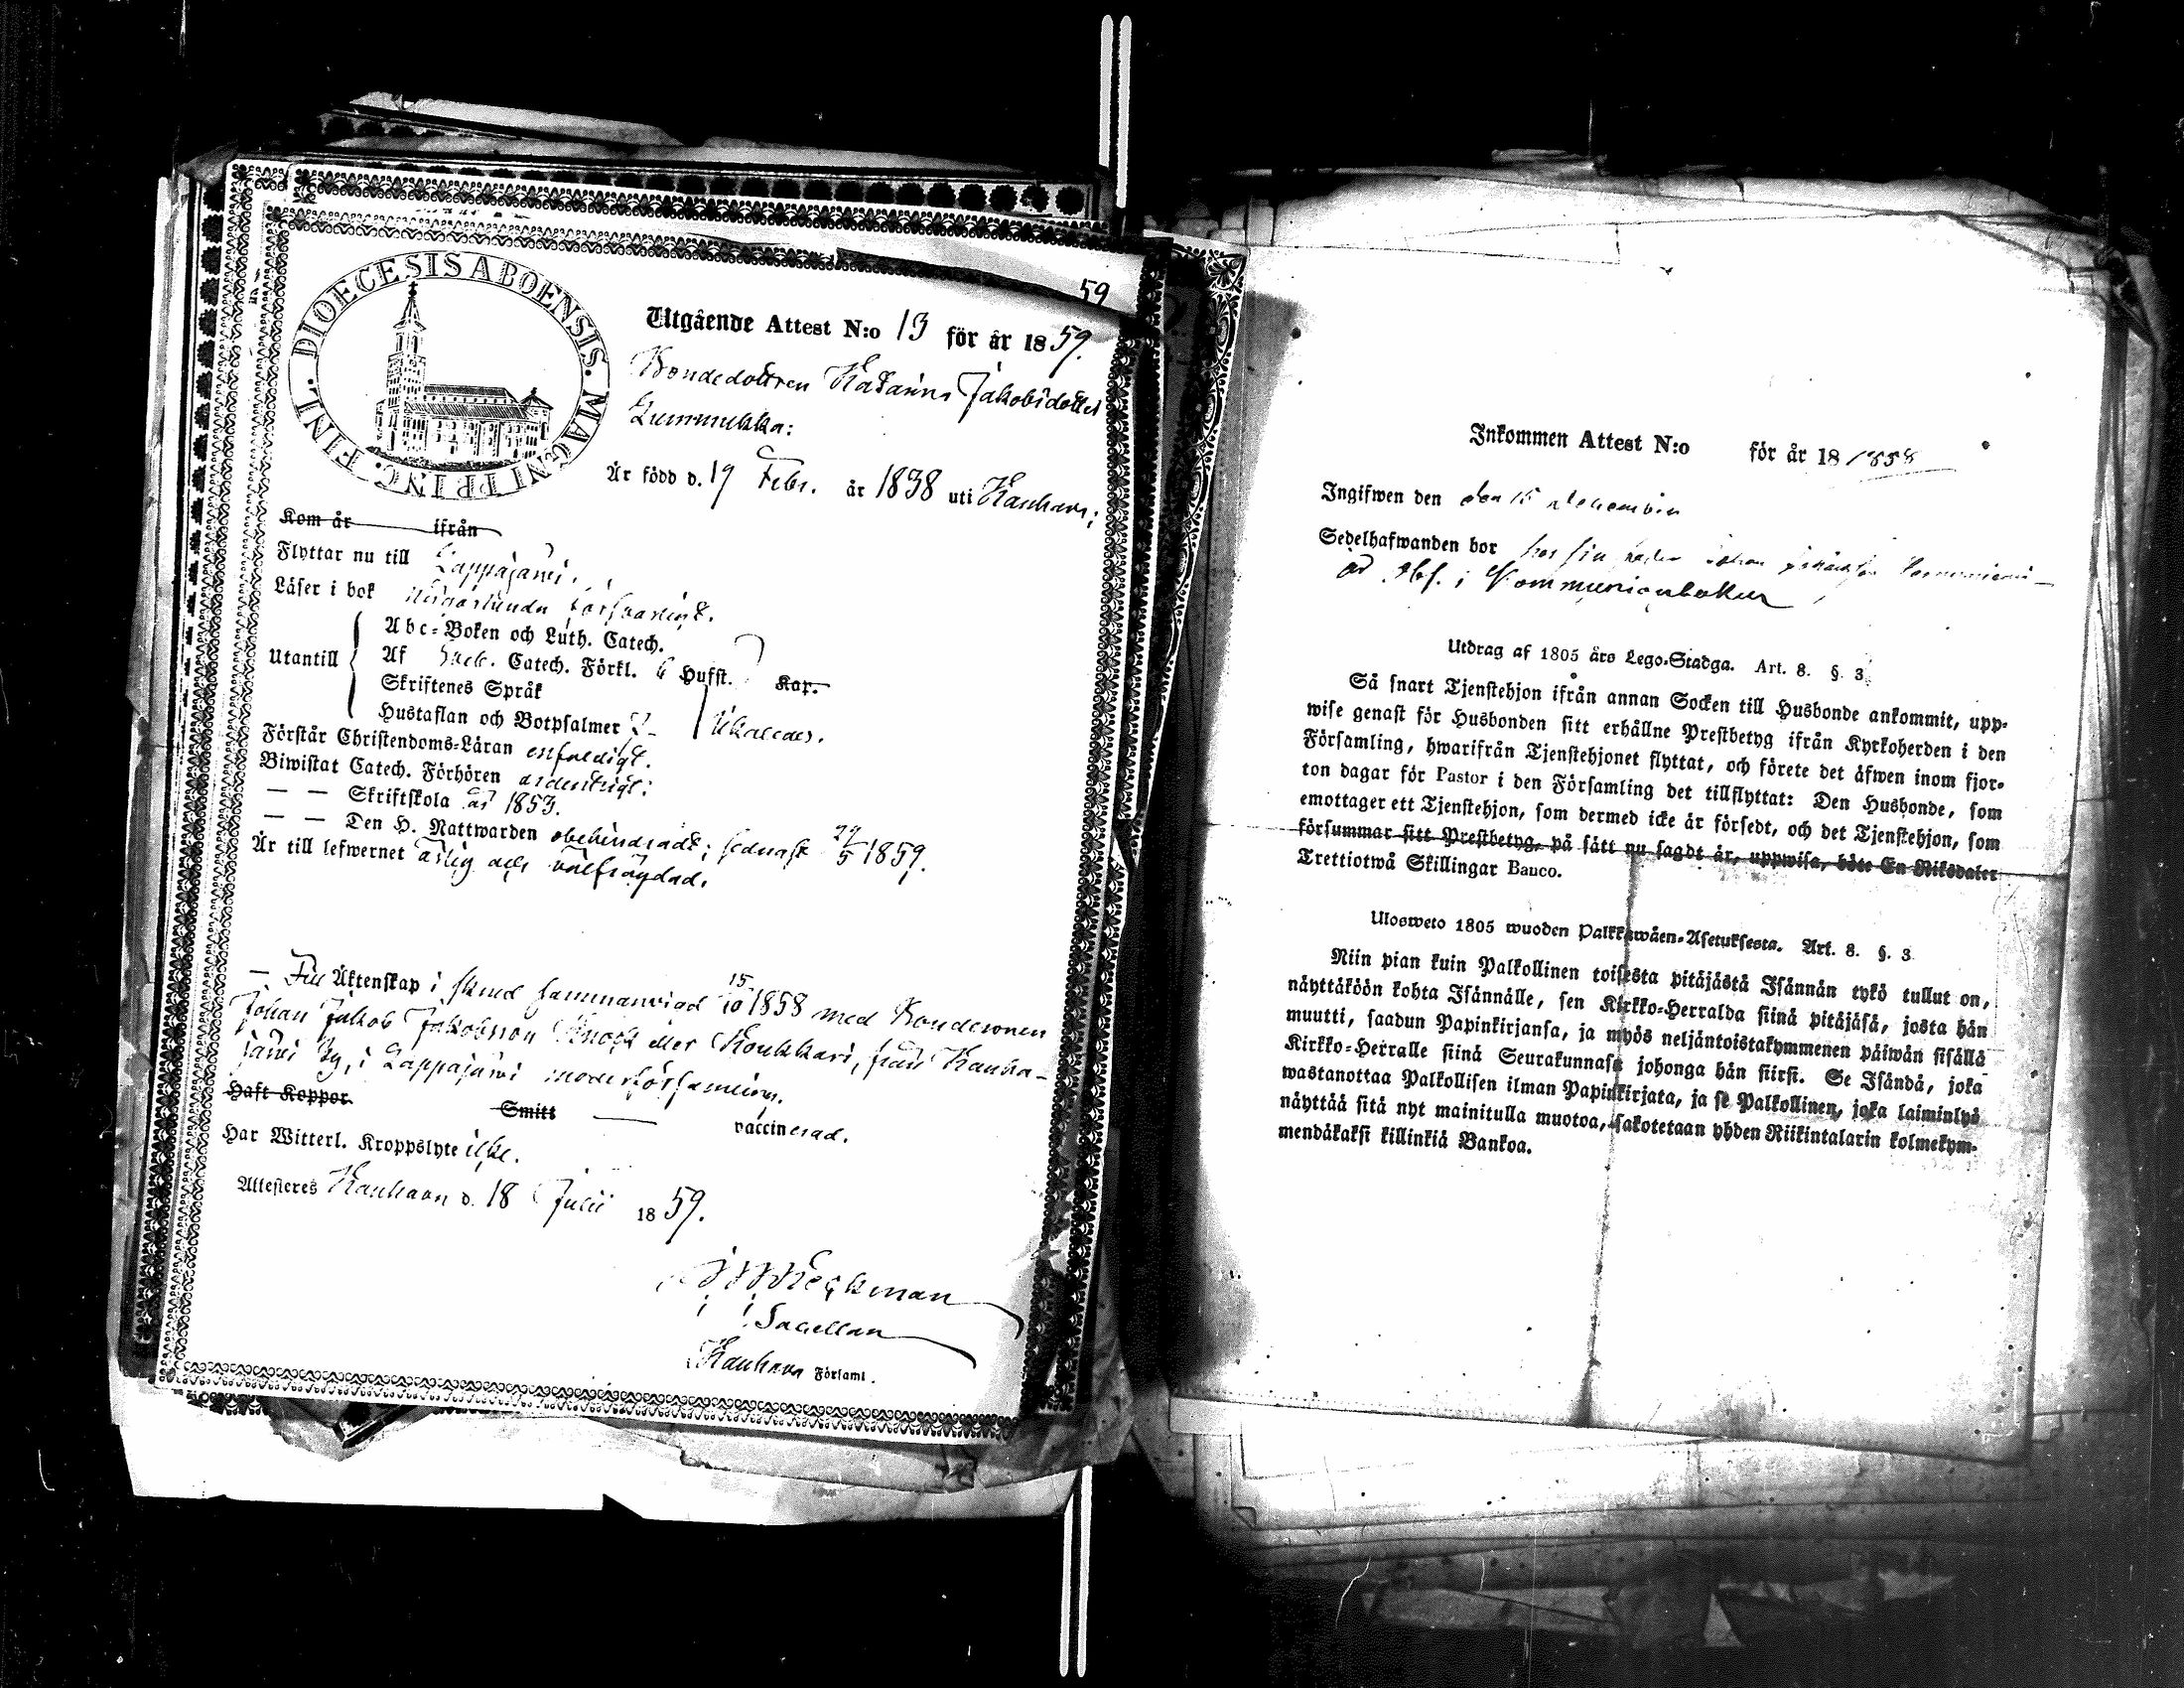 59
DIOECESIS ABOENSIS. MAGNI PRINC. FINL.
Utgående Attest N:o 13 för år 1859.
Bondedottren Katarina Jakobsdotter
Lummukka:
Är född d. 19 Febr. år 1838 uti Kauhava;
Kom år ifrån
Flyttar nu till Lappajärvi.
Läser i bok försvarligt.
Utantill
Abc-Boken och Luth. Catech.
Af Sveb. Catech. Förkl. 6 Hufst. Kap.
Skriftenes Språk
Hustaflan och Botpsalmer
Förstår Christendoms-Läran enfaldigt.
Biwistat Catech. Förhören ordentligt;
— — Skriftskola år 1853.
— — Den H. Nattwarden obehindradt; sednast 29/5 1859.
Är till lefwernet ärlig och välfräjdad.
— Till Äktenskap i stånd sammanvigd 15/10 1858 med Bondesonen
Johan Jakob Jakobsson eller Koukkari, från Kauha-
järvi By, i Lappajärvi moderförsamling.
Haft Koppor. Smitt vaccinerad.
Har Witterl. Kroppslyte icke.
Attesteres Kauhava d. 18 Julii 1859.
Heckman
Sacellan
Kauhava Församl.
Inkommen Attest N:o för år 18 1858
Ingifwen den den 15 december
Sedelhafwanden bor hos sin
i Kommunionboken
Utdrag af 1805 års Lego-Stadga. Art. 8. §. 3.
Så snart Tjenstehjon ifrån annan Socken till Husbonde ankommit, upp-
wise genast för Husbonden sitt erhållne Prestbetyg ifrån Kyrkoherden i den
Församling, hwarifrån Tjenstehjonet flyttat, och förete det äfwen inom fjor-
ton dagar för Pastor i den Församling det tillflyttat: Den Husbonde, som
emottager ett Tjenstehjon, som dermed icke är försedt, och det Tjenstehjon, som
försummar sitt Prestbetyg, på sätt nu sagdt är, uppwisa, böte En Riksdaler
Trettiotwå Skillingar Banco.
Ulosweto 1805 wuoden Palkkawäen-Asetuksesta. Art. 8. §. 3
Niin pian kuin Palkollinen toisesta pitäjästä Isännän tykö tullut on,
näyttäköön kohta Isännälle, sen Kirkko-Herralda siinä pitäjäsä, josta hän
muutti, saadun Papinkirjansa, ja myös neljäntoistakymmenen päiwän sisällä
Kirkko-Herralle siinä Seurakunnasa johonga hän siirsi. Se Isändä, joka
wastanottaa Palkollisen ilman Papinkirjata, ja se Palkollinen, joka laiminlyö
näyttää sitä nyt mainitulla muotoa, sakotetaan yhden Riikintalarin kolmekym-
mendäkaksi killinkiä Bankoa.